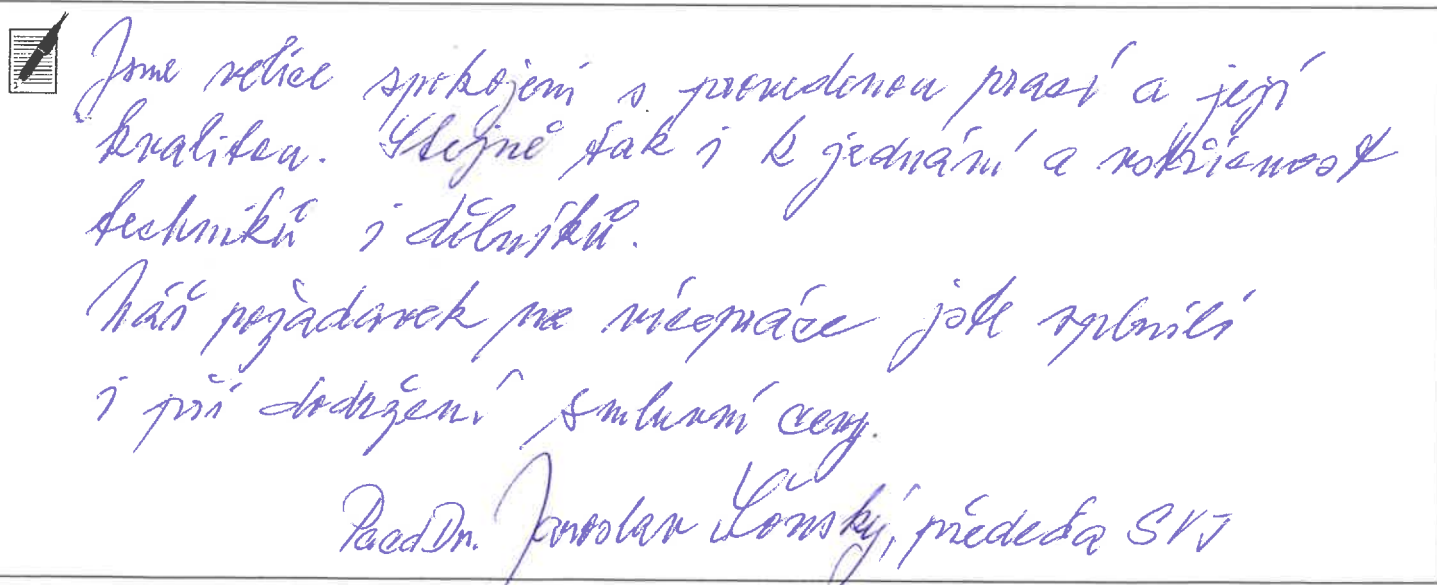 Jsme velice spokojeni s provedenou prací a její
kvalitou. Stejně tak i k jednání a vstřícnost
techniků i dělníků.
Náš požadavek na vícepráce jste splnili
i při dodržení smluvní ceny.
PaedDr. Jaroslav předseda SVJ